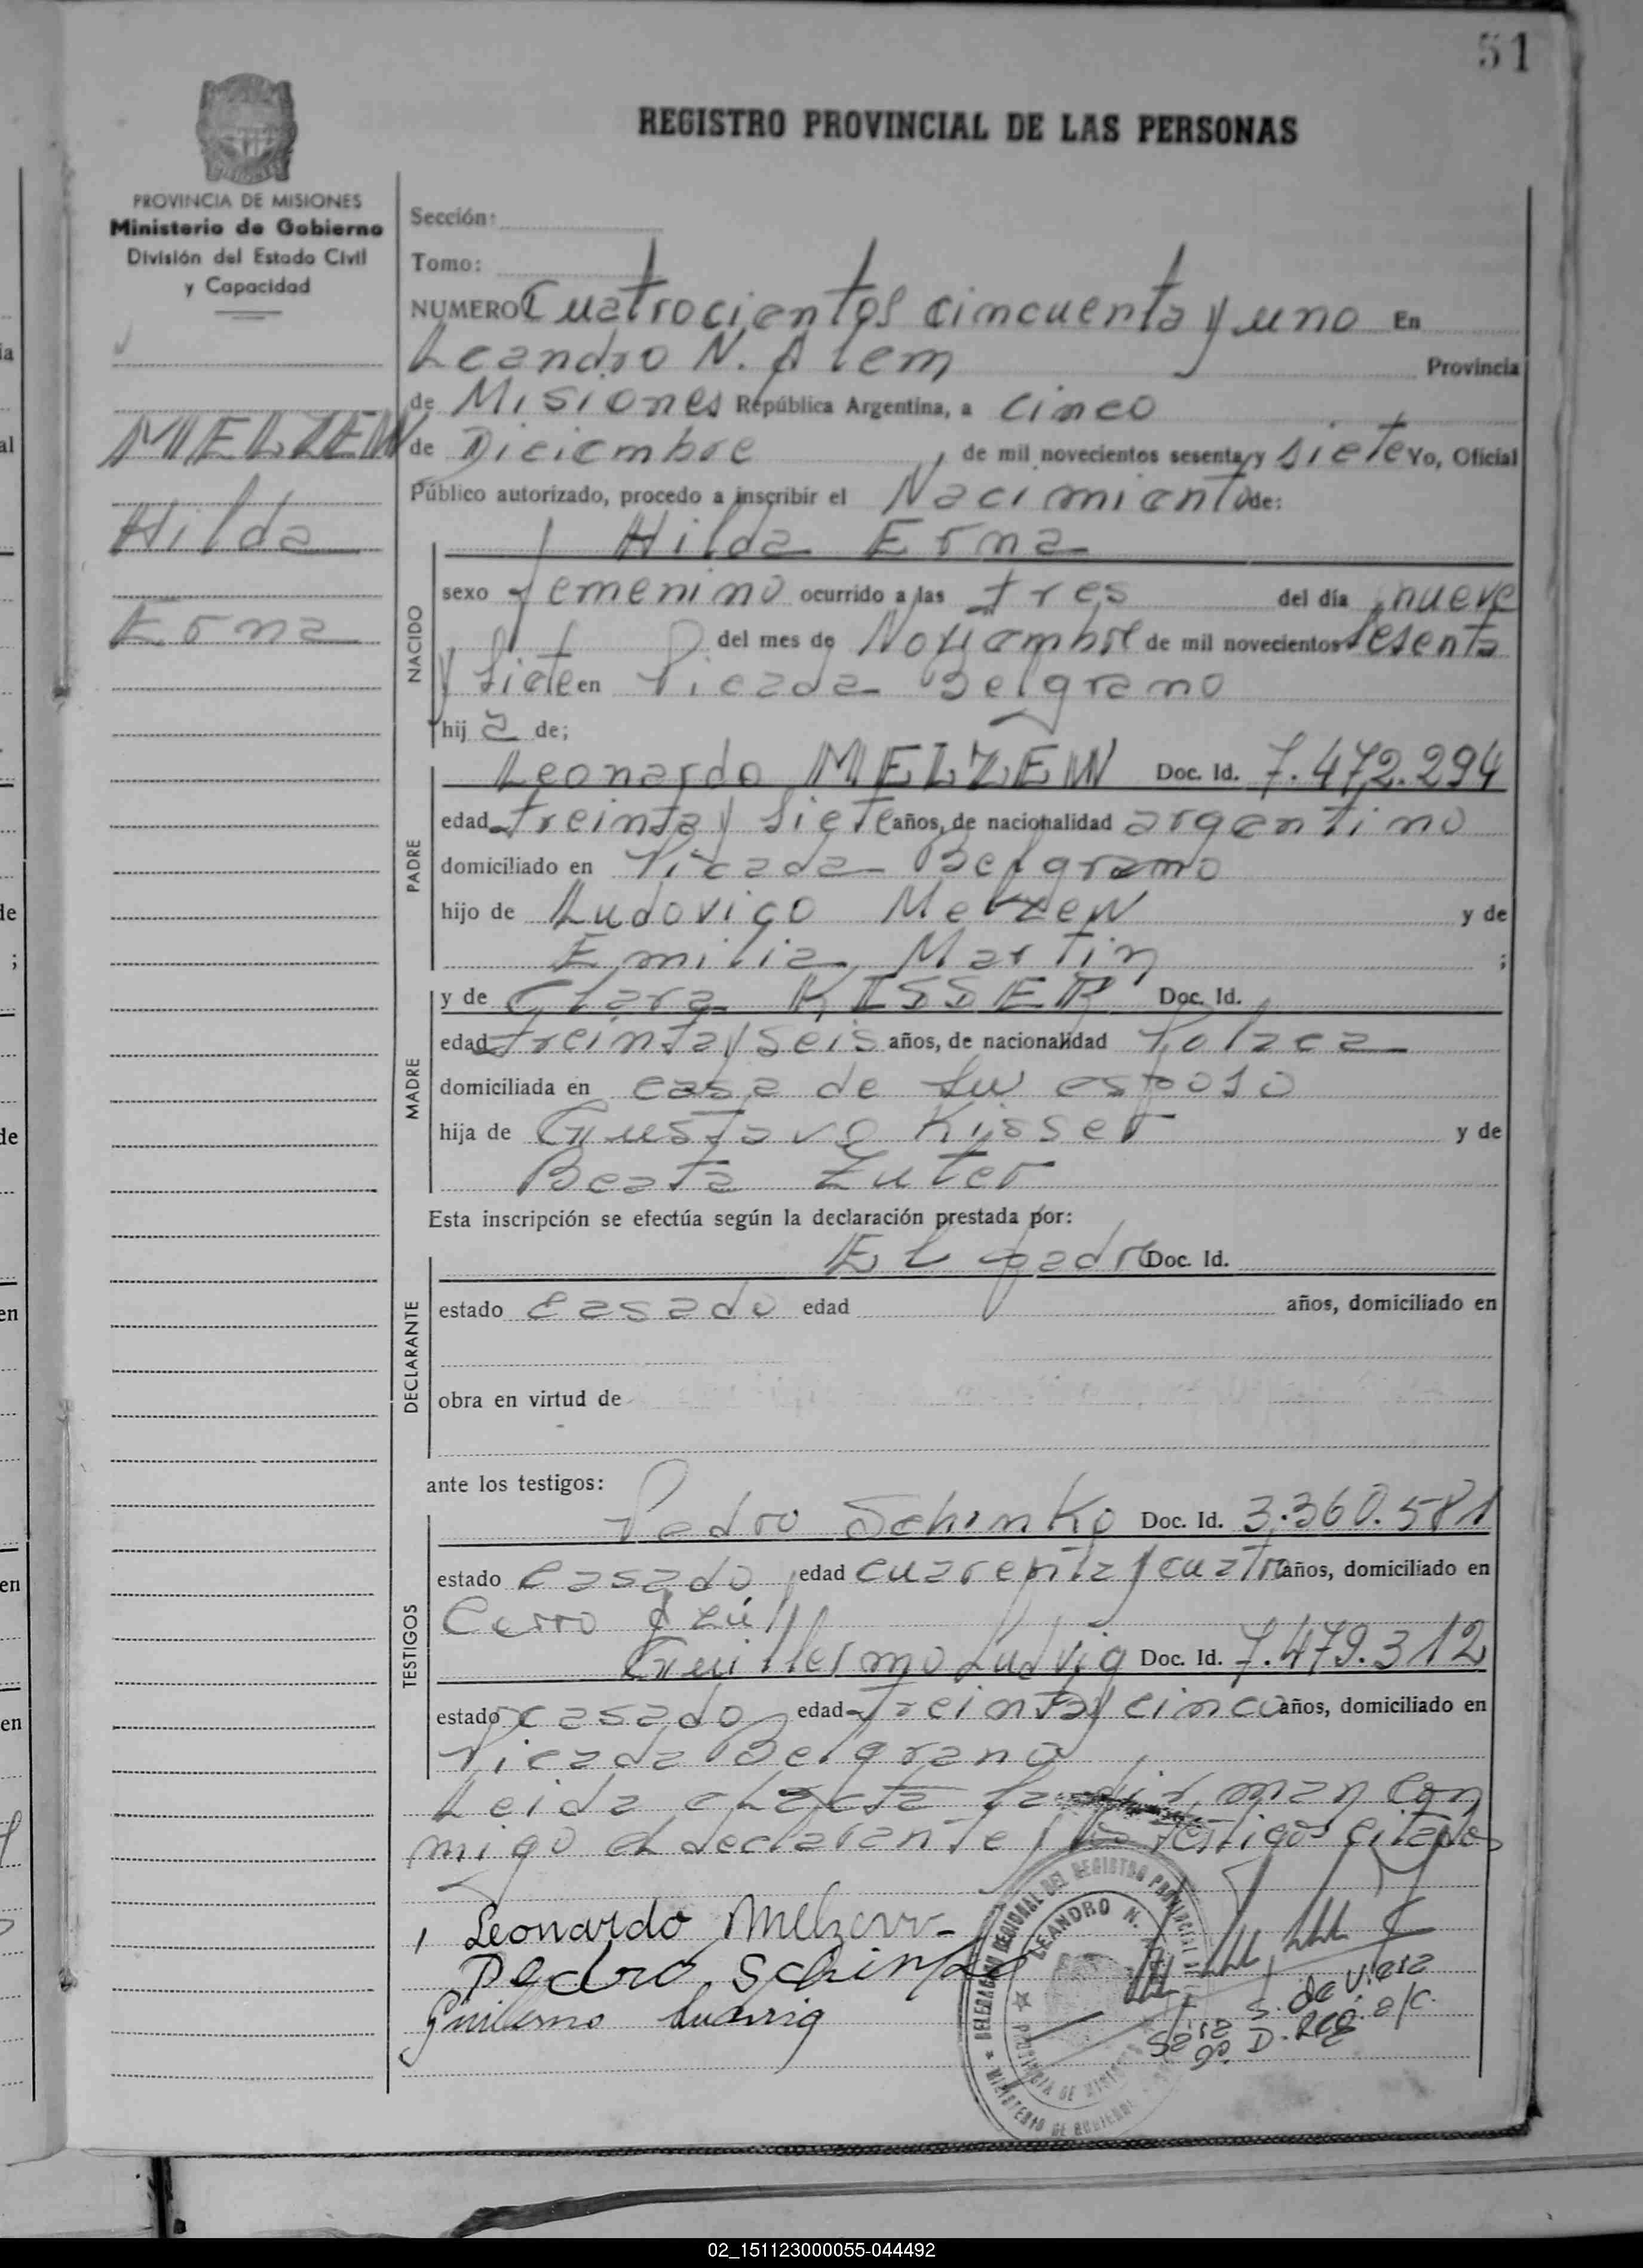 51
REGISTRO PROVINCIAL DE LAS PERSONAS
PROVINCIA DE MISIONES
Ministerio de Gobierno
División del Estado Civil
y Capacidad
MELZEW
Hilda
Erna
Sección:
Tomo:
NUMERO Cuatrocientos cincuenta y uno En
Leandro N. Alem Provincia
de Misiones República Argentina, a cinco
de Diciembre, de mil novecientos sesenta y siete Yo, Oficial
Público autorizado, procedo a inscribir el Nacimiento de:
Hilda Erna
NACIDO
sexo femenino ocurrido a las tres del día nueve
del mes de Noviembre de mil novecientos sesenta
y siete en Picada Belgrano
hij a de;
PADRE
Leonardo MELZEW Doc. Id. 7.472.294
edad treinta y siete años, de nacionalidad argentino
domiciliado en Picada Belgrano
hijo de Ludovico Melzew y de
Emilia Martin ;
MADRE
y de Clara KISSER Doc. Id.
edad treinta y seis años, de nacionalidad Polaca
domiciliada en casa de su esposo
hija de Gustavo Kisser y de
Beata Zuter
Esta inscripción se efectúa según la declaración prestada por:
DECLARANTE
El padre Doc. Id.
estado casado edad años, domiciliado en
obra en virtud de
ante los testigos:
TESTIGOS
Pedro Schinko Doc. Id. 3.360.581
estado casado edad cuarenta y cuatro años, domiciliado en
Cerro Azúl
Guillermo Ludvig Doc. Id. 7.479.312
estado casado edad treinta y cinco años, domiciliado en
Picada Belgrano
Leida el acta la firman con
migo el declarante y los testigos citados
Leonardo Melzew
Pedro Schinko
Guilermo Ludwig
DELEGACION REGIONAL DEL REGISTRO PROVINCIAL
LEANDRO N.
PROVINCIA DE MISIONES
MINISTERIO DE GOBIERNO
Sara S. de Viera
D. Reg. a/c.
02_151123000055-044492